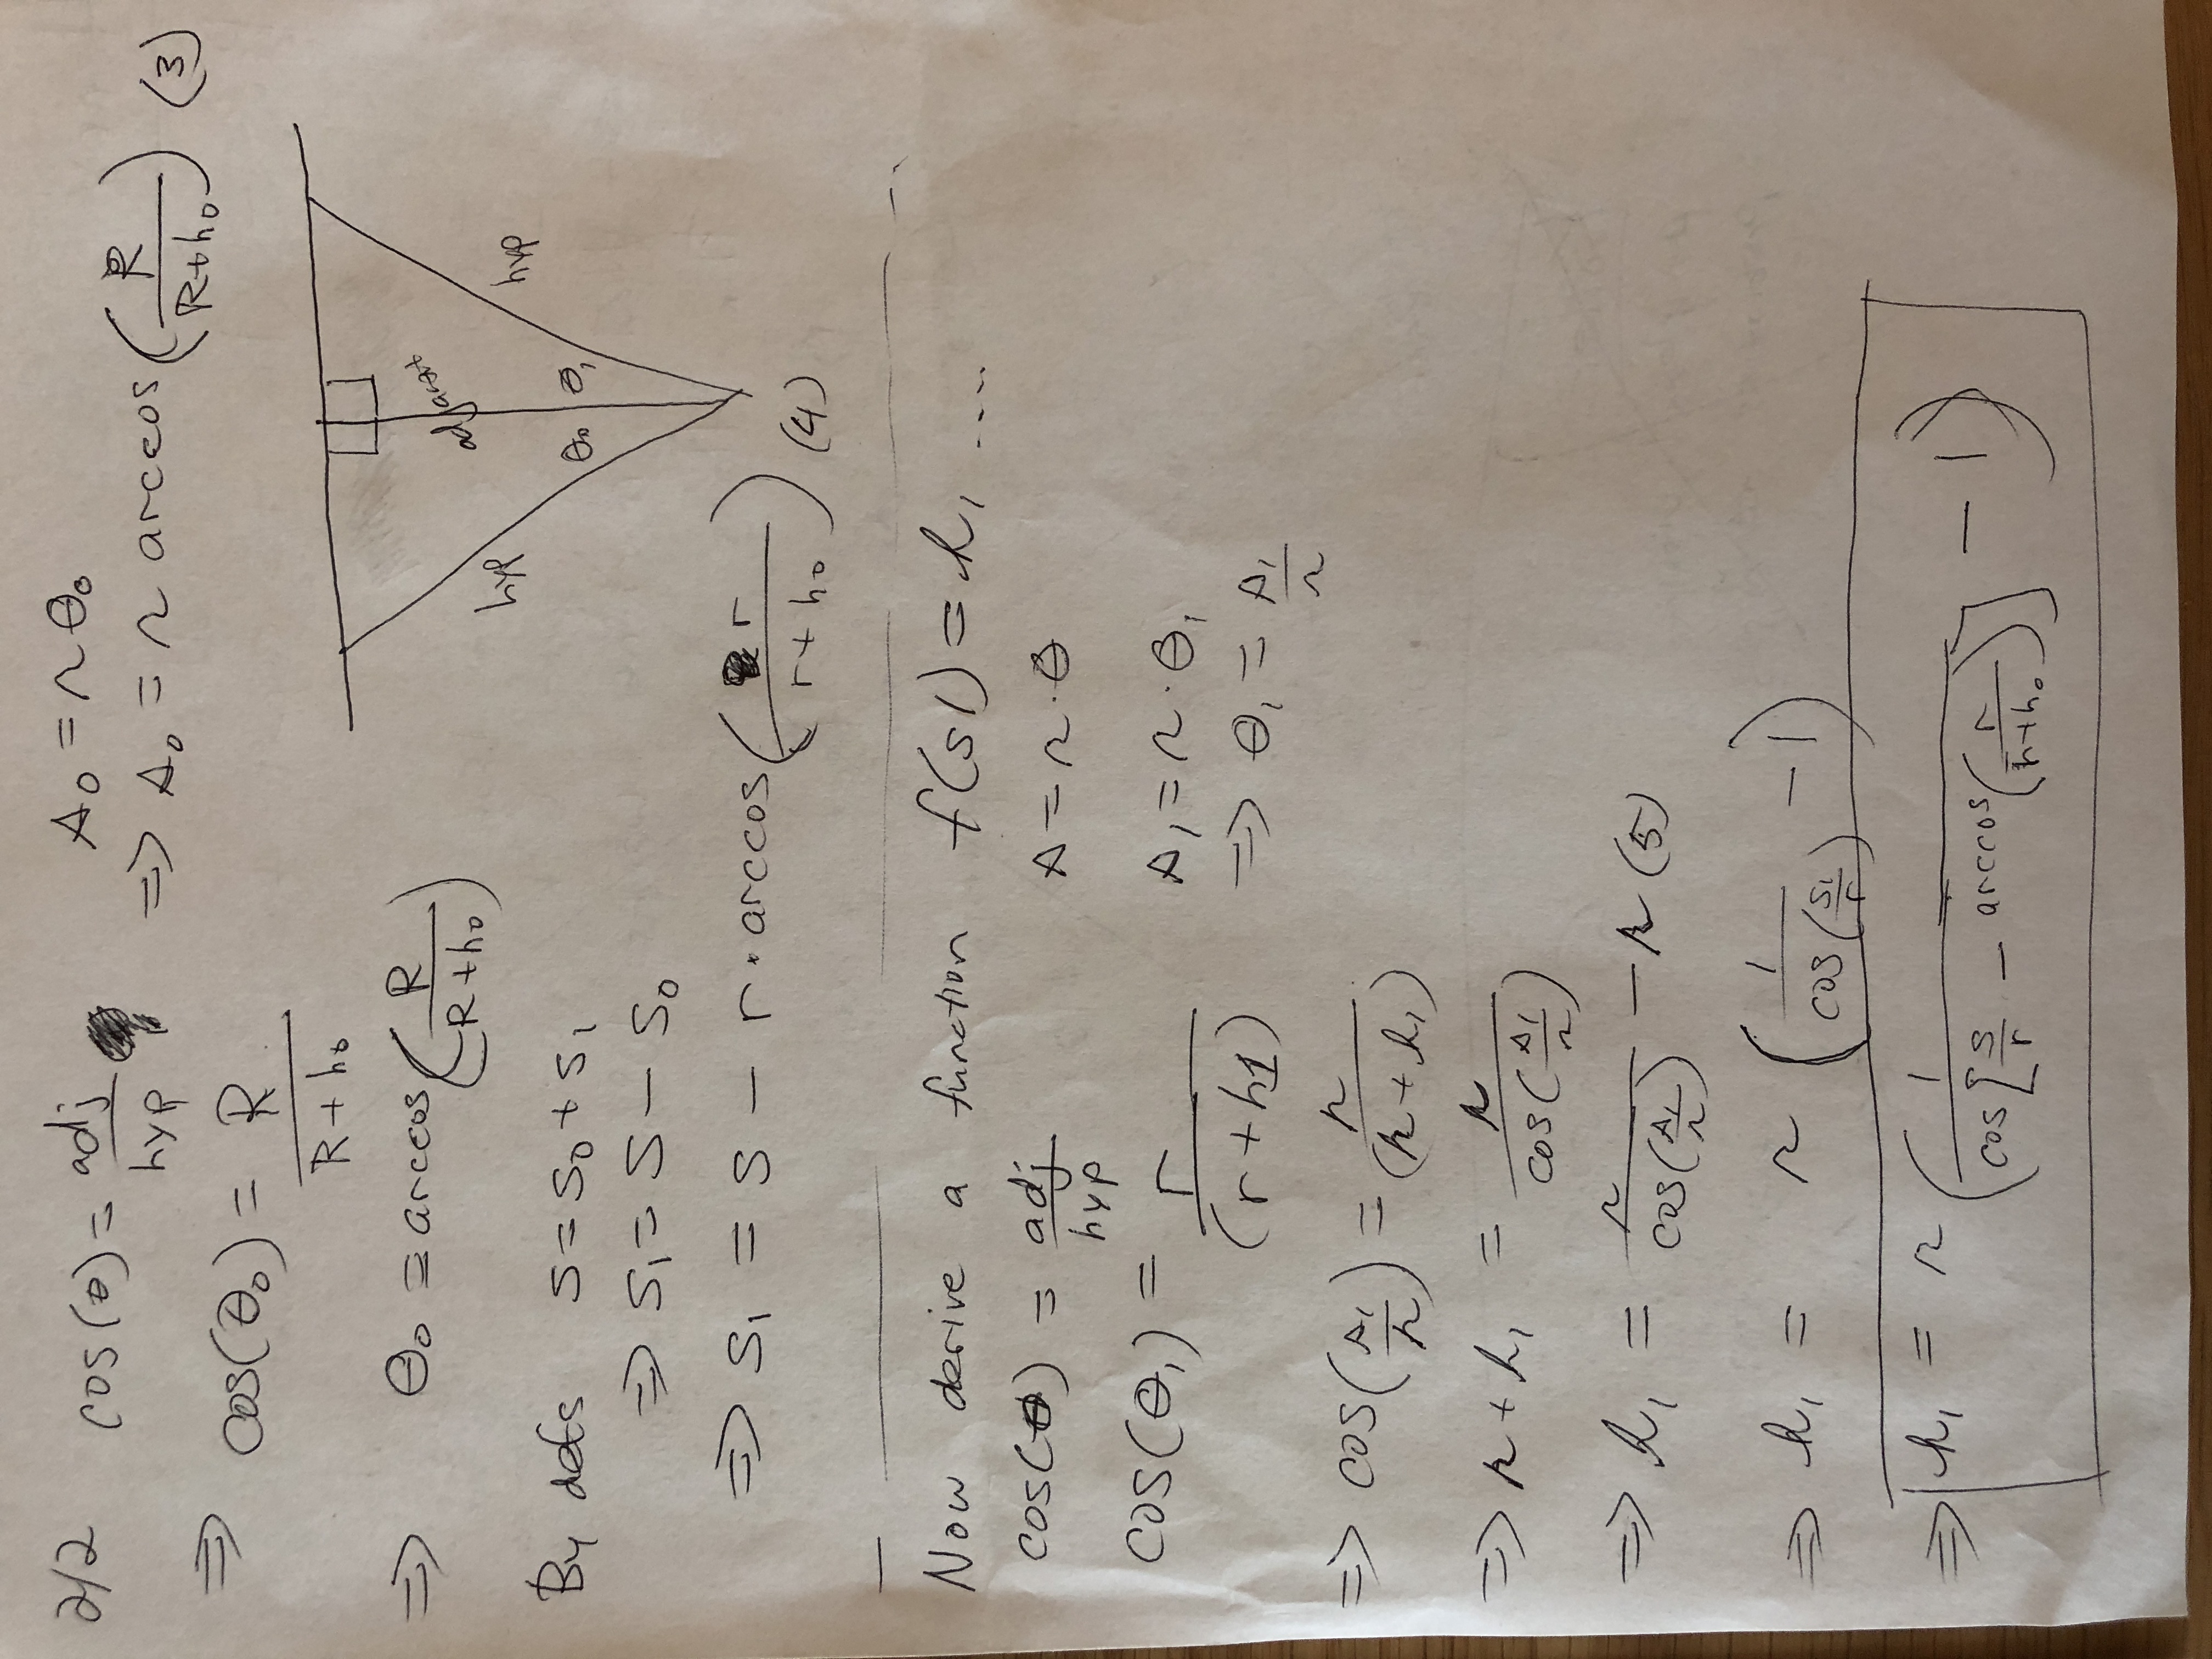 2/2
cos(θ) = adj/hyp
s₀ = rθ₀
⇒ s₀ = r arccos(R/(R+h₀)) (3)
⇒ cos(θ₀) = R/(R+h₀)
⇒ θ₀ = arccos(R/(R+h₀))
hyp adjacent hyp
θ₀ θ₁
By defs s = s₀ + s₁
⇒ s₁ = s − s₀
⇒ s₁ = s − r · arccos(r/(r+h₀)) (4)
Now derive a function f(s1) = h₁ ....
cos(θ) = adj/hyp
s = r · θ
cos(θ₁) = r/(r+h1)
s₁ = r · θ₁
⇒ θ₁ = s₁/r
⇒ cos(s₁/r) = r/(r+h₁)
⇒ r + h₁ = r/cos(s₁/r)
⇒ h₁ = r/cos(s₁/r) − r (5)
⇒ h₁ = r (1/cos(s₁/r) − 1)
⇒ h₁ = r (1/cos[s/r − arccos(r/(r+h₀))] − 1)